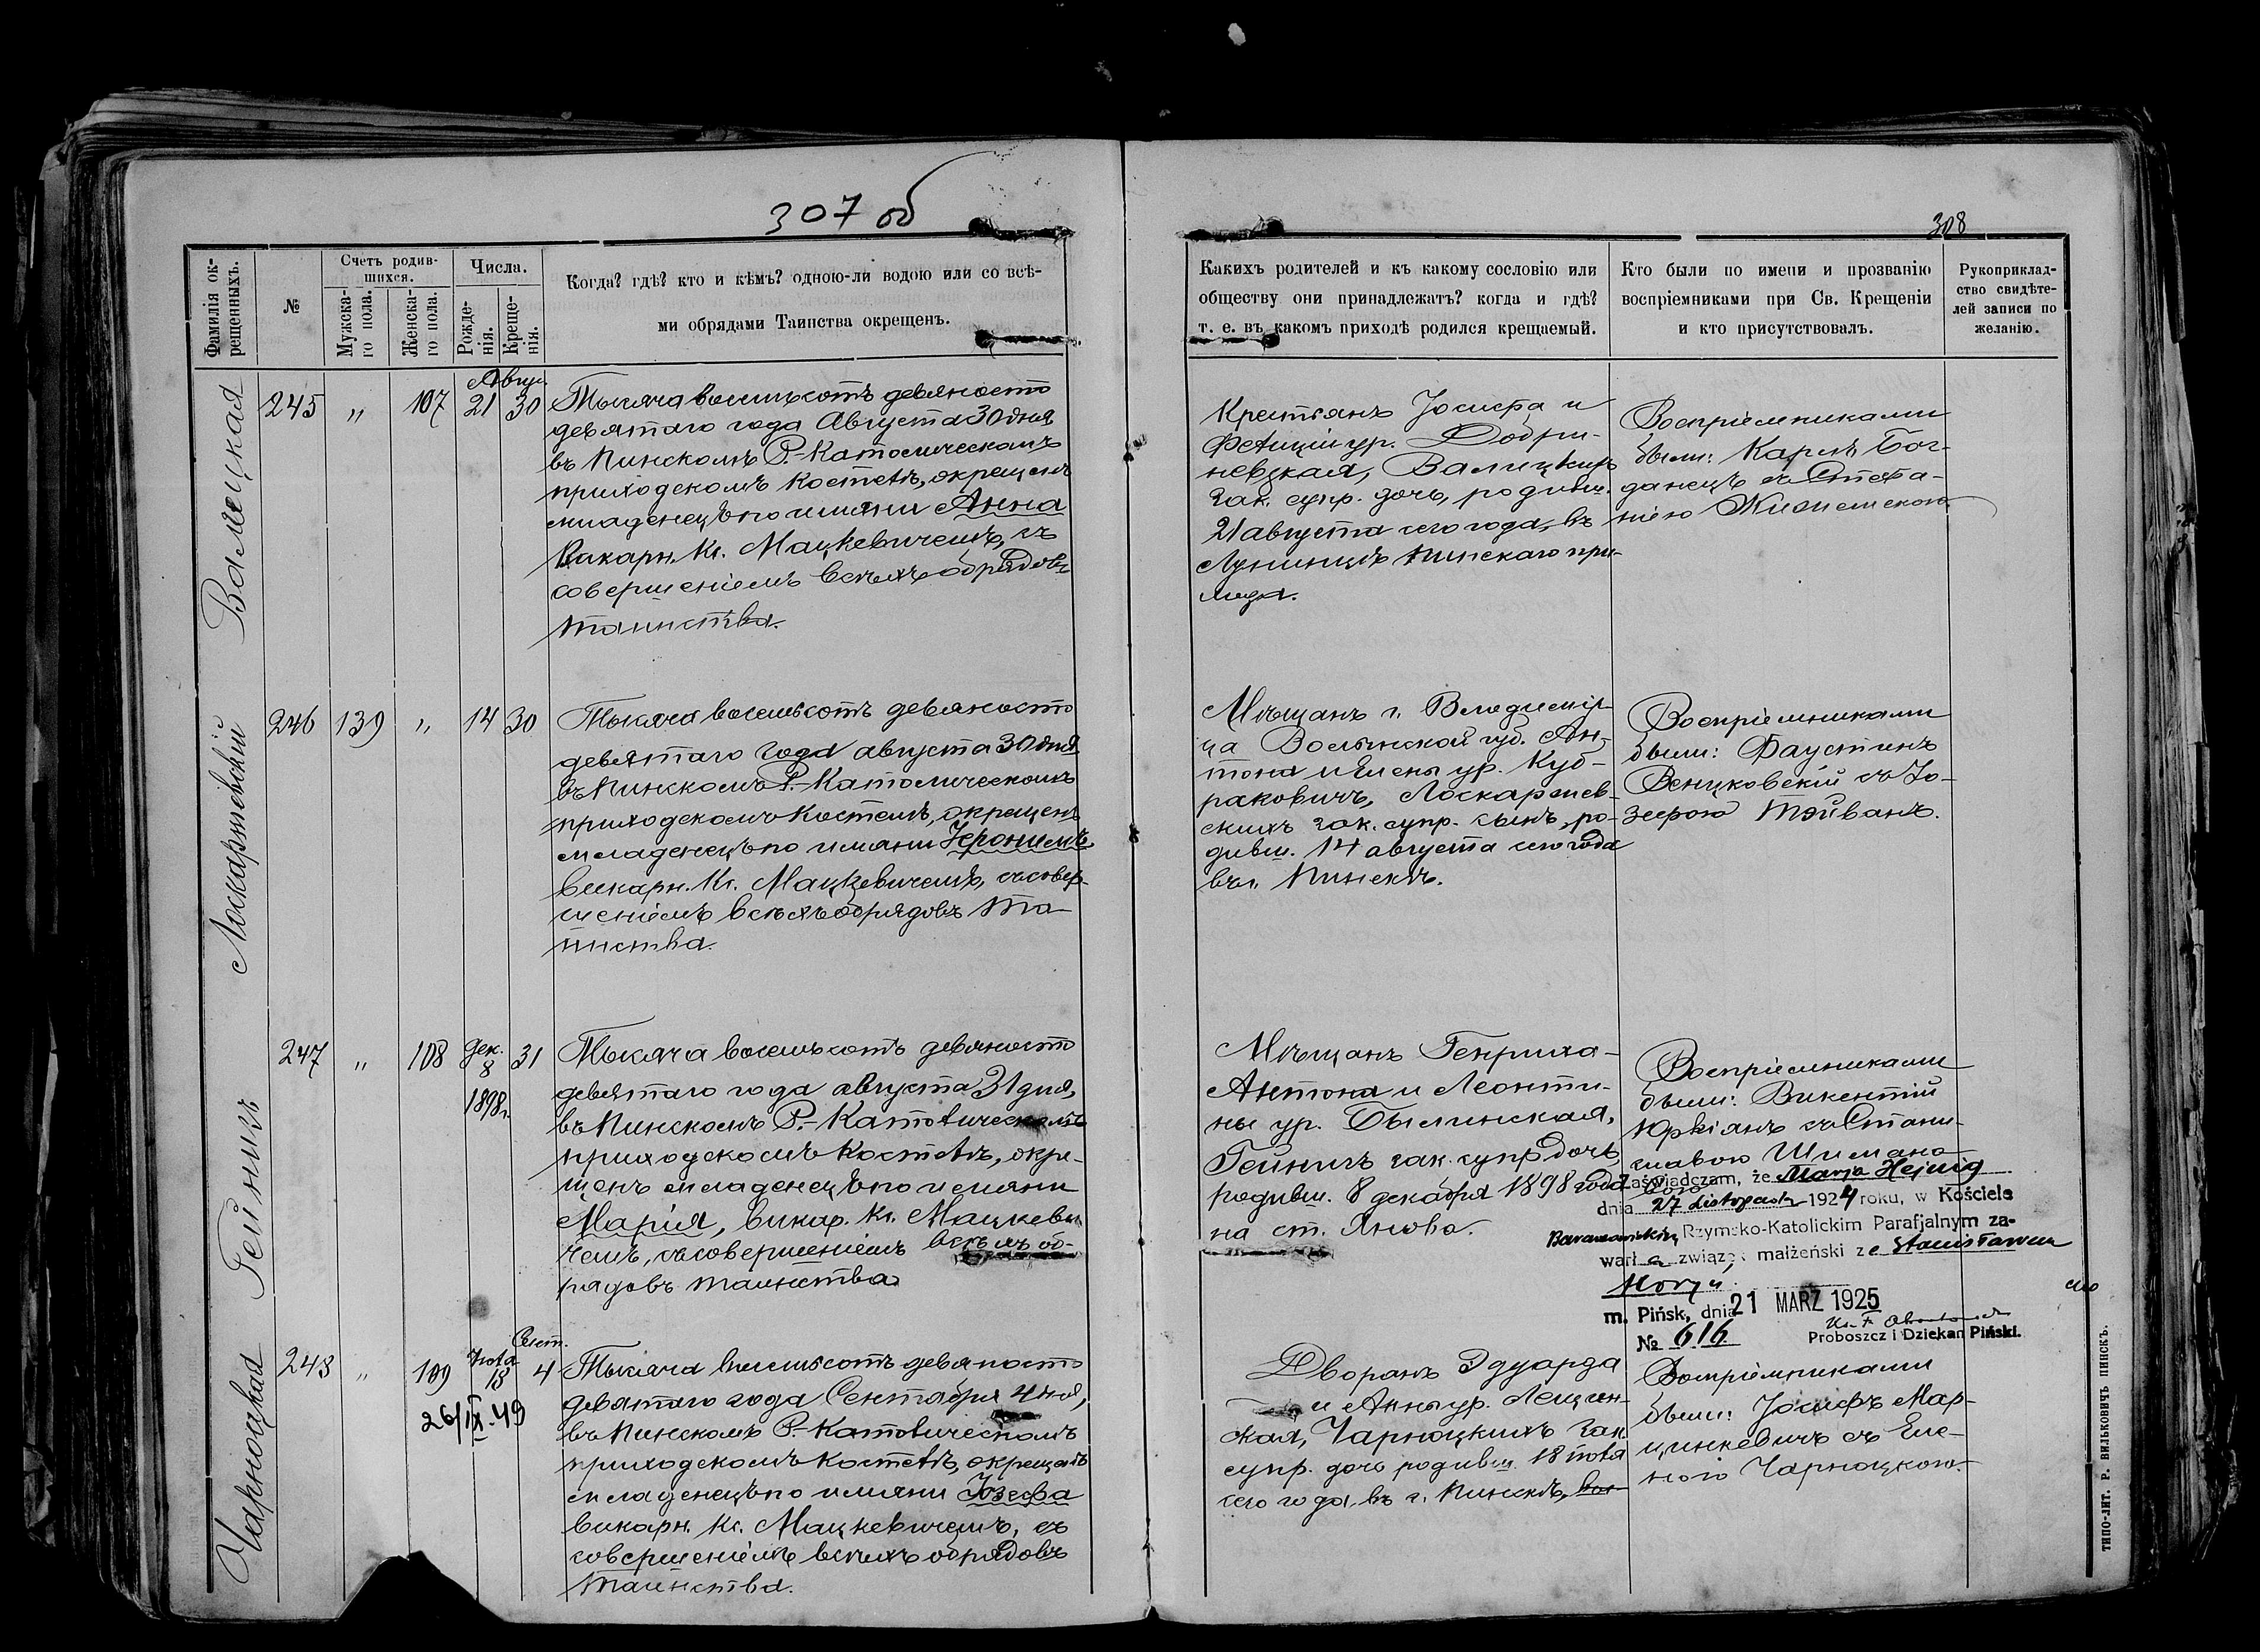 307 об
308
Фамилія ок-
рещенныхъ.
№
Счетъ родив-
шихся.
Мужска-
го пола.
Женска-
го пола.
Числа.
Рожде-
нія.
Креще-
нія.
Когда? гдѣ? кто и кѣмъ? одною-ли водою или со всѣ-
ми обрядами Таинства окрещенъ.
Какихъ родителей и къ какому сословію или
обществу они принадлежатъ? когда и гдѣ?
т. е. въ какомъ приходѣ родился крещаемый.
Кто были по имени и прозванію
воспріемниками при Св. Крещеніи
и кто присутствовалъ.
Рукоприклад-
ство свидѣте-
лей записи по
желанію.
Валецкая
245 " 107 Авгус. 21 30
Тысяча восемьсотъ девяносто
девятаго года Августа 30 дня
въ Пинскомъ Р.-Католическомъ
приходскомъ костелѣ, окрещенъ
младенецъ по имени Анна
Викарн. Кс. Мацкевичемъ, съ
совершеніемъ всѣхъ обрядовъ
таинства.
Крестьянъ Іосифа и
Фелиціи ур. Добри-
невская, Валицкихъ
зак. супр. дочь, родивш.
21 августа сего года, въ
Лунинцѣ Пинскаго при-
хода.
Воспріемниками
были: Карлъ Бог-
данецъ съ Стефа-
ніею
Лоскаржевскій
246 139 " 14 30
Тысяча восемьсотъ девяносто
девятаго года августа 30 дня
въ Пинскомъ Р.-Католическомъ
приходскомъ костелѣ, окрещенъ
младенецъ по имени Іеронимъ
викарн. Кс. Мацкевичемъ, съ совер-
шеніемъ всѣхъ обрядовъ та-
инства.
Мѣщанъ г. Владимір-
ца Волынской губ. Ан-
тона и Елены ур. Куб-
раковичъ, Лоскаржев-
скихъ зак. супр. сынъ, ро-
дивш. 14 августа сего года
въ г. Пинскѣ.
Воспріемниками
были: Фаустинъ
Венцковскій съ Іо-
зефою Тэйванъ.
Гейнигъ
247 " 108 Дек. 8 31
1898 г.
Тысяча восемьсотъ девяносто
девятаго года августа 31 дня,
въ Пинскомъ Р.-Католическомъ
приходскомъ костелѣ, окре-
щенъ младенецъ по имени
Марія, викар. Кс. Мацкеви
чемъ, съ совершеніемъ всѣхъ об-
рядовъ таинства.
Мѣщанъ Генриха-
Антона и Леонти-
ны ур. Былинская,
Гейнигъ зак. супр. дочь
родивш. 8 декабря 1898 года
на ст. Яново.
Воспріемниками
были: Викентій
Юркіанъ съ Стани-
славою Шимано-
Zaświadczam, że Marja Hejnig
dnia 27 Listopada 1924 roku, w Kościele
Baranowickim Rzymsko-Katolickim Parafjalnym za-
warła związek małżeński ze Stanisławem
m. Pińsk, dnia 21 MARZ 1925
№ 616
Proboszcz i Dziekan Piński.
Чарноцкая
248 " 109 Іюля 18 Сент. 4
26/IX.49
Тысяча восемьсотъ девяносто
девятаго года Сентября 4 дня,
въ Пинскомъ Р.-Католическомъ
приходскомъ костелѣ, окрещенъ
младенецъ по имени Іозефа
викарн. Кс. Мацкевичемъ, съ
совершеніемъ всѣхъ обрядовъ
таинства.
Дворянъ Эдуарда
и Анны ур. Лещин-
ская, Чарноцкихъ зак.
супр. дочь родивш. 18 іюля
сего года, въ г. Пинскѣ,
Воспріемниками
были: Іосифъ Мар-
цинкевичъ съ Еле-
ною Чарноцкою.
ТИПО-ЛИТ. Р. ВИЛЬКОВИЧЪ ПИНСКЪ.